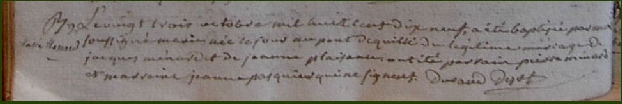 Le vingt trois octobre mil huit cent dix neuf, a été baptisée par moi
soussigné marie née le jour au pont de quille du légitime mariage de
jacques ménard et de jeanne plaisance ont été parrain pierre ménard
et marraine jeanne pasquier qui ne signent. Durand